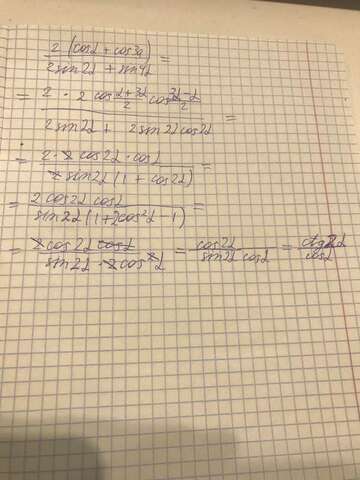 2 (cosα + cos3α) / 2sin2α + sin4α =
= 2 · 2 cos α+3α/2 cos 3α-α/2 / 2sin2α + 2sin2αcos2α =
= 2·2 cos2α · cosα / 2sin2α (1 + cos2α) =
= 2cos2α cosα / sin2α (1+2cos²α-1) =
= 2cos2α cosα / sin2α · 2cos²α = cos2α / sin2α cosα = ctg2α / cosα